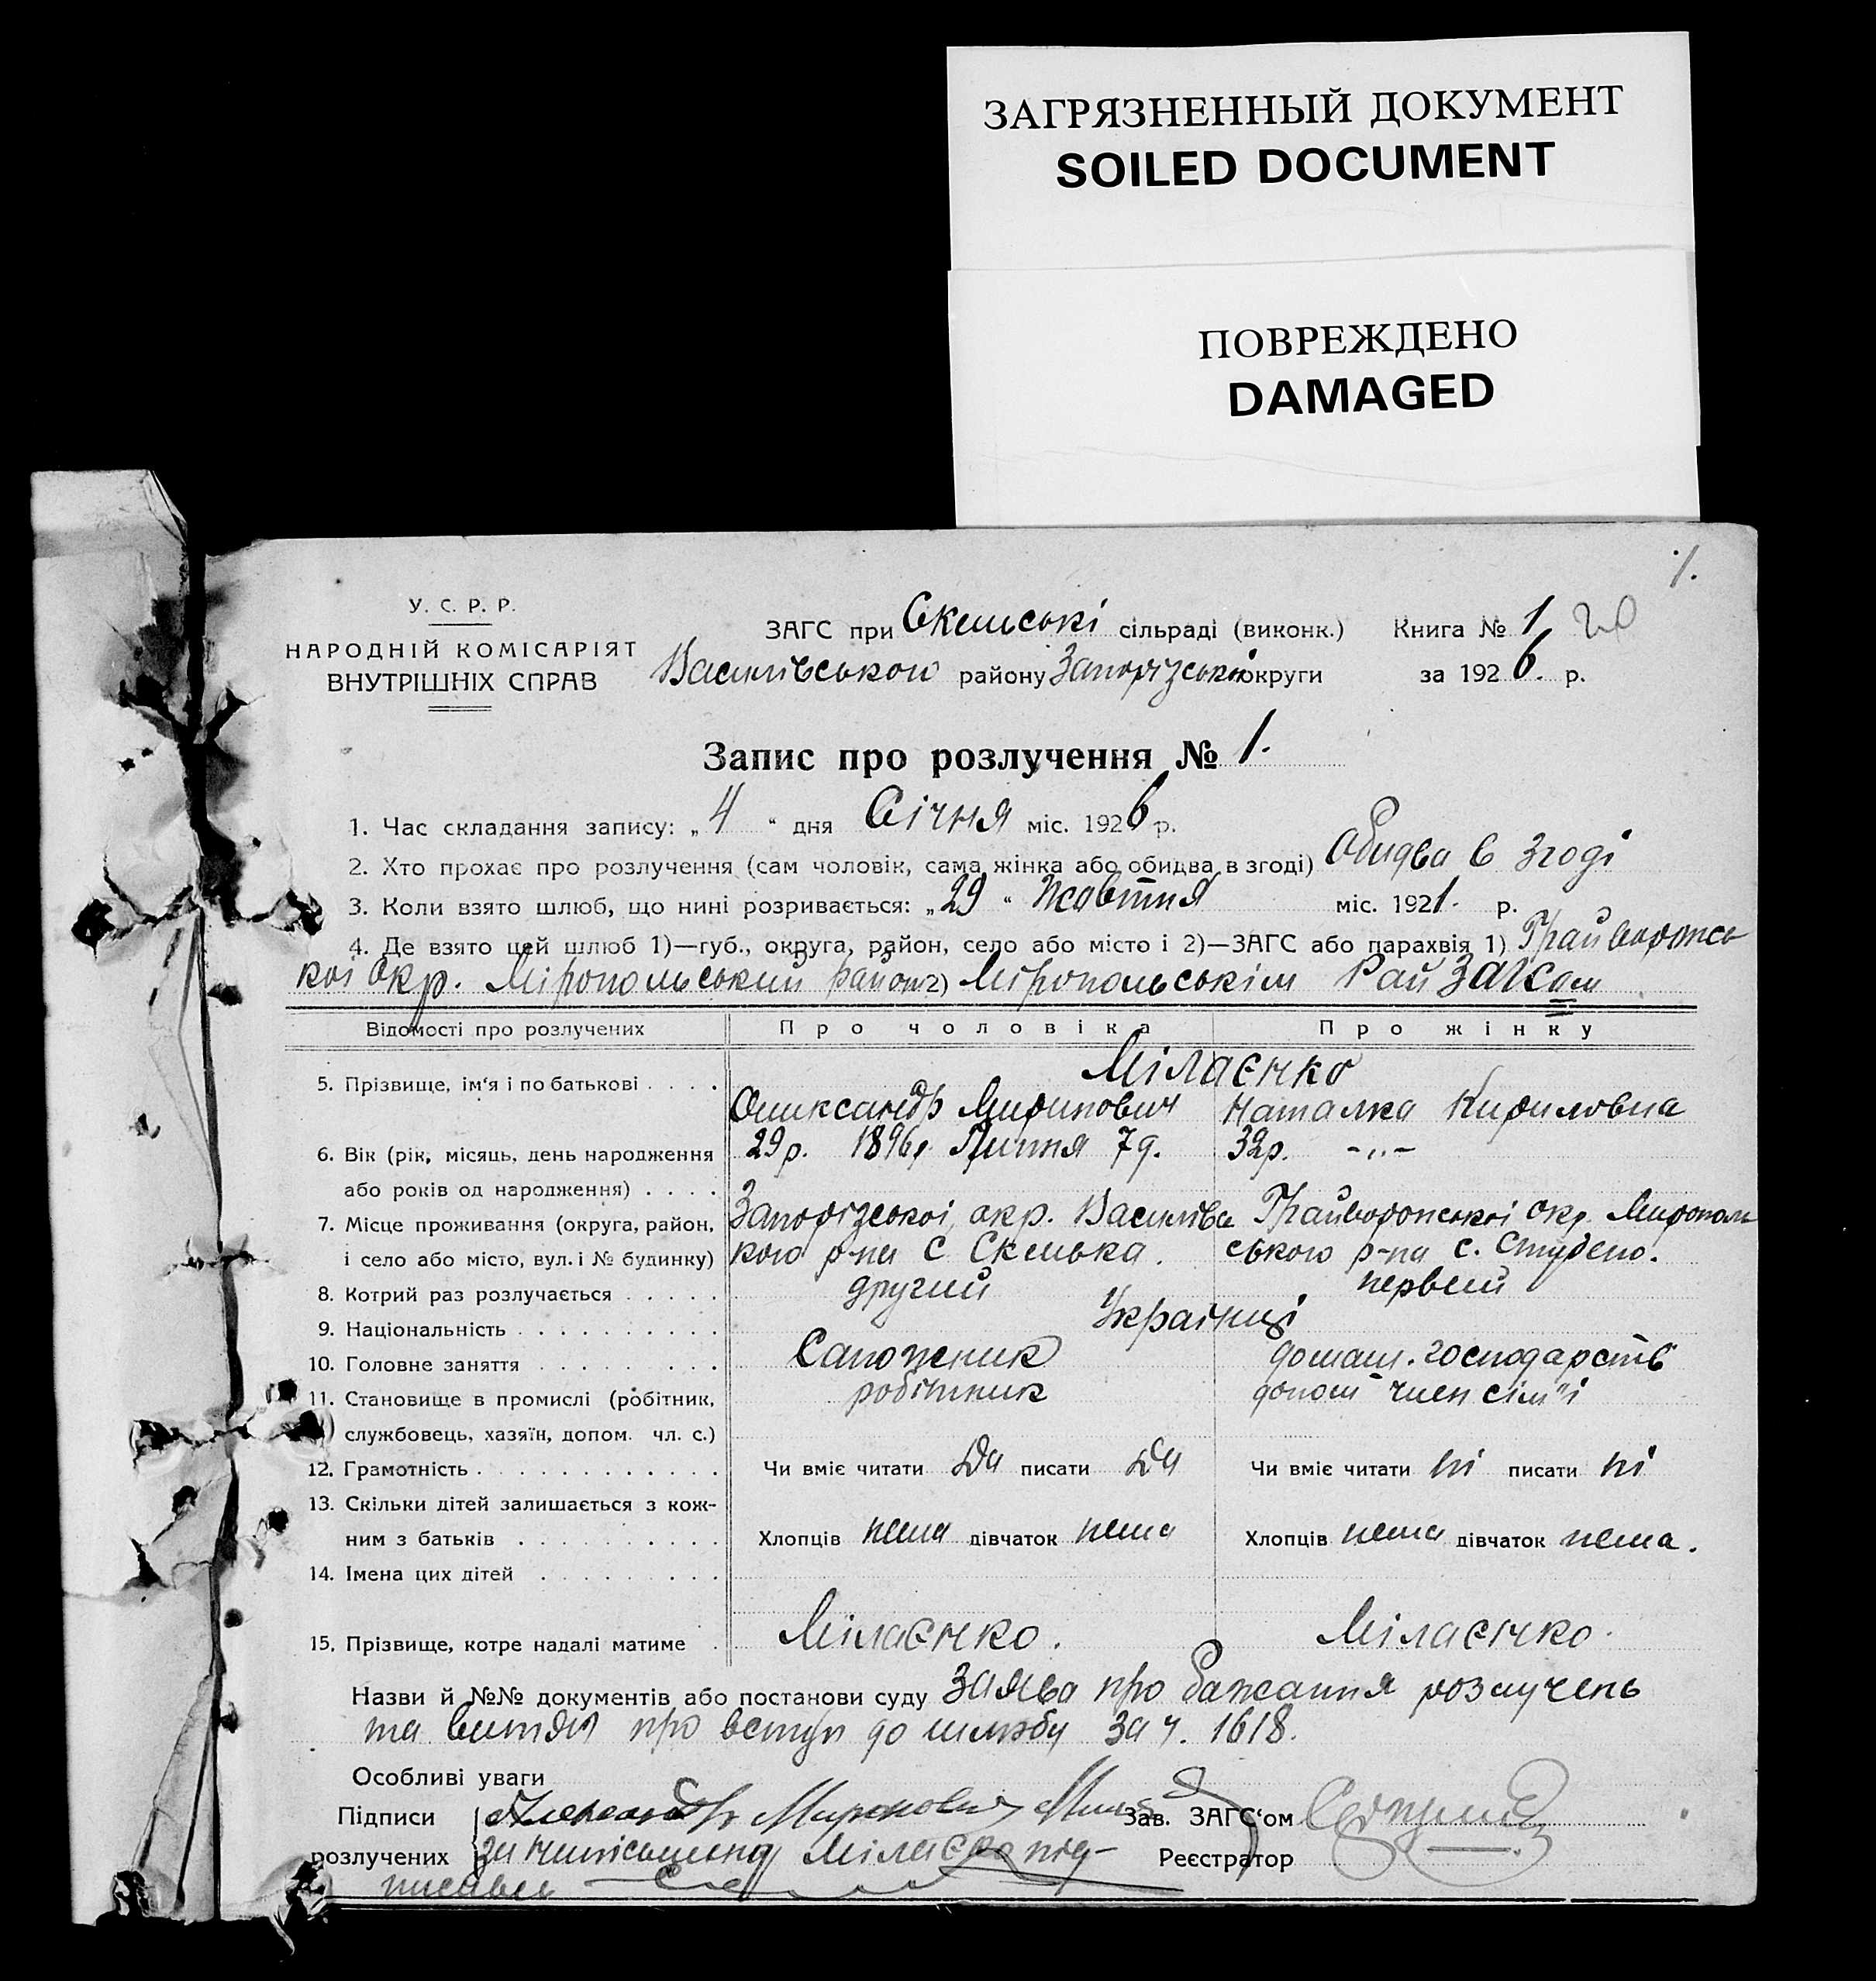 ЗАГРЯЗНЕННЫЙ ДОКУМЕНТ
SOILED DOCUMENT
ПОВРЕЖДЕНО
DAMAGED
1.
У. С. Р. Р.
НАРОДНІЙ КОМІСАРІЯТ
ВНУТРІШНІХ СПРАВ
ЗАГС при Скельські сільраді (виконк.) Книга № 1
Василівського району Запорізської округи за 1926. р.
Запис про розлучення № 1.
1. Час складання запису: „4“ дня Січня міс. 1926 р.
2. Хто прохає про розлучення (сам чоловік, сама жінка або обидва в згоді) Обидва в згоді
3. Коли взято шлюб, що нині розривається: „29“ Жовтня міс. 1921. р.
4. Де взято цей шлюб 1)—губ., округа, район, село або місто і 2)—ЗАГС або парахвія 1) Грайворонсь
кої Окр. Міропольський район 2) Міропольськім РайЗАГСом
Відомості про розлучених Про чоловіка Про жінку
5. Прізвище, ім‘я і по батькові . . . . Мілаєнко
Олександр Миринович Наталка Кириловна
6. Вік (рік, місяць, день народження 29 р. 1896 р. Липня 7 д. 32 р. -„-
або років од народження) . . . .
7. Місце проживання (округа, район, Запорізської окр. Василівсь Грайворонської окр. Мирополь
і село або місто, вул. і № будинку) кого р-на С Скелька. ського р-на с. Студено.
8. Котрий раз розлучається . . . . . другий первий
9. Національність . . . . . . . . . . Українці
10. Головне заняття . . . . . . . . . Сапожник домаш. господарств
11. Становище в промислі (робітник, робітник допом член сім"ї
службовець, хазяїн, допом. чл. с.)
12. Грамотність . . . . . . . . . . . . Чи вміє читати Да писати Да Чи вміє читати ні писати ні
13. Скільки дітей залишається з кож-
ним з батьків . . . . . . . . . . Хлопців нема дівчаток нема Хлопців нема дівчаток нема.
14. Імена цих дітей . . . . . . . . .
15. Прізвище, котре надалі матиме . Мілаєнко. Мілаєнко.
Назви й №№ документів або постанови суду Заява про бажання розлучень
та витяг про вступ до шлюбу за ч. 1618.
Особливі уваги
Підписи Александр Миронович Зав. ЗАГС‘ом
розлучених за неписьменну під- Реєстратор
писавсь